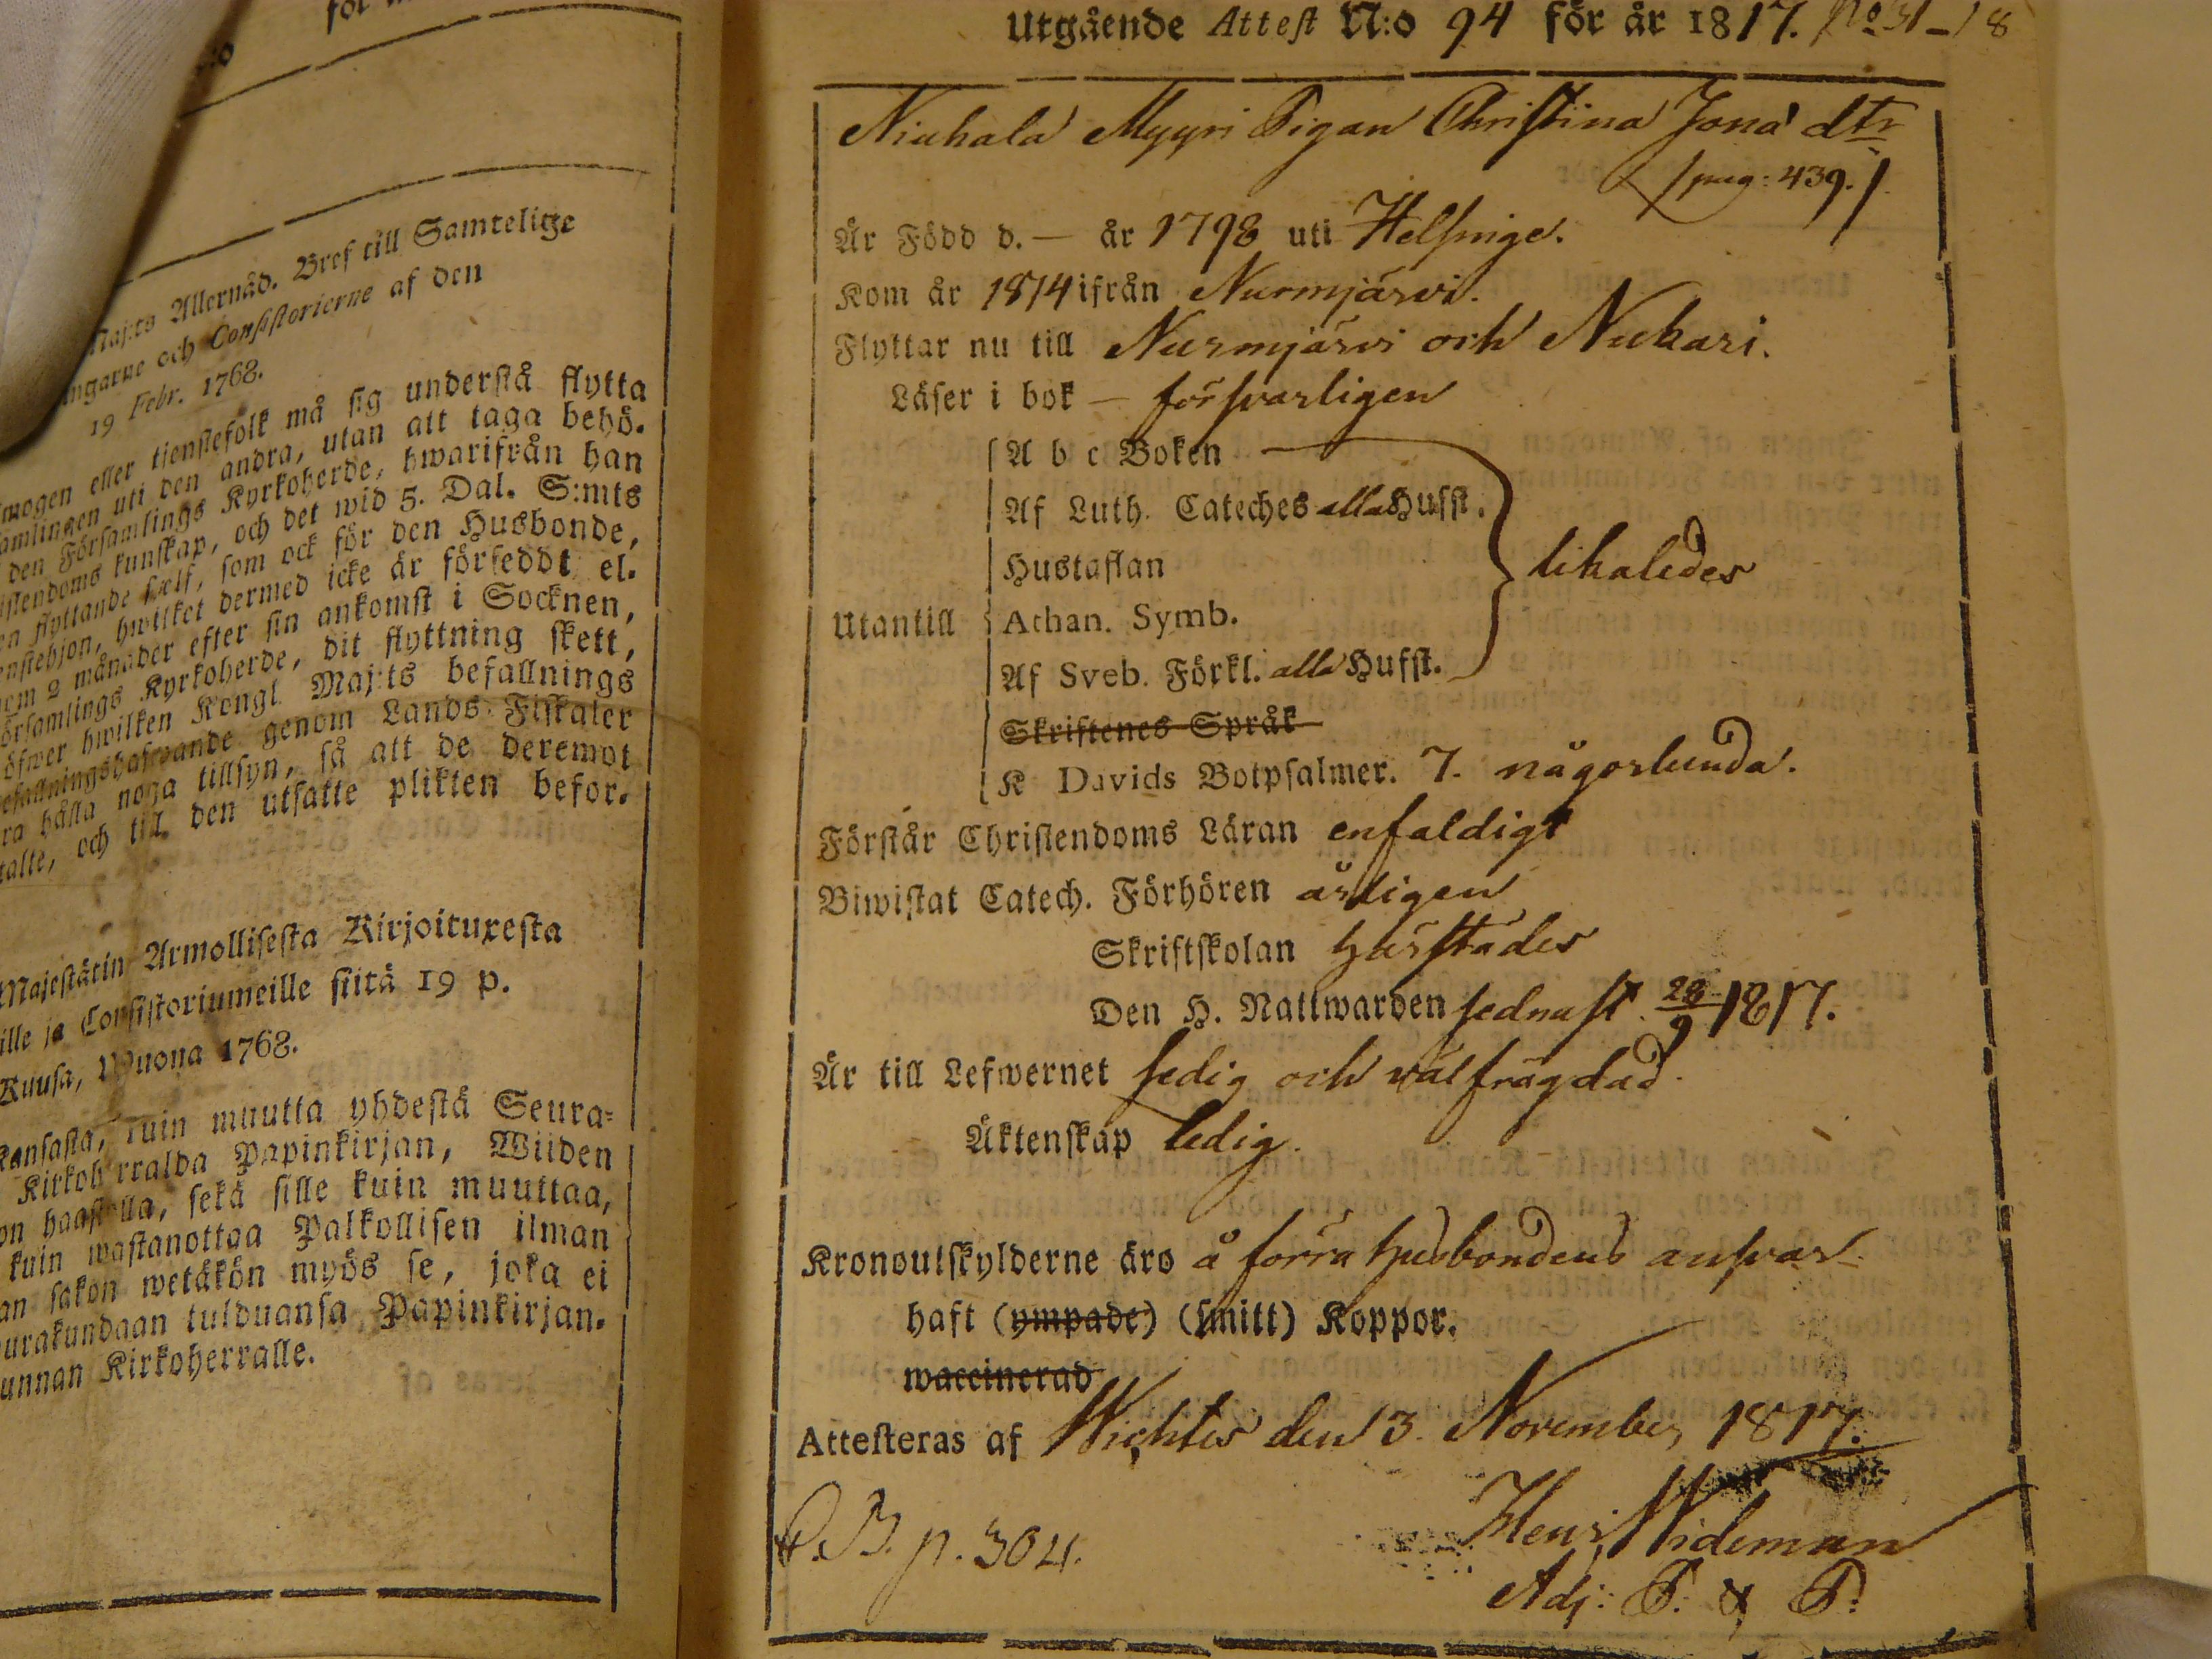 för
Maj:ts Allernåd. Bref till Samtelige
ingarne och Consistorierne af den
19 Febr. 1768.
mogen eller tienstefolk må sig understå flytta
amlingen uti den andra, utan att taga behö-
den Församlings Kyrkoherde, hwarifrån han
istendoms kunskap, och det wid 5. Dal. S:mts
en flyttande sielf, som ock för den Husbonde,
enstehjon, hwilket dermed icke är förseddt el-
om 2 månader efter sin ankomst i Socknen,
örsamlings Kyrkoherde, dit flyttning skett,
öfwer hwilken Kongl. Maj:ts befallnings
efallningshafwande genom Lands-Fiskaler
ra hålla noga tillsyn, så att de deremot
talte, och till den utsatte plikten befor-
Majestätin Armollisesta Kirjoituxesta
ille ja Consistoriumeille siitä 19 p.
Kuusa, Wuona 1768.
Kansasta, kuin muutta yhdestä Seura-
Kirkoh rralda Papinkirjan, Wiiden
on haastolla, sekä sille kuin muuttaa,
kuin wastanottaa Palkollisen ilman
an sakon wetäkön myös se, joka ei
urakundaan tulduansa Papinkirjan-
unnan Kirkoherralle.
Utgående Attest N:o 94 för år 1817. No 31 - 18
Niuhala Myyri Pigan Christina Jona dtr
/ pag: 439. /
Är Född d. — år 1798 uti Helsinge.
Kom år 1814 ifrån Nurmjärvi.
Flyttar nu till Nurmjärvi och Nukari.
Läser i bok — försvarligen
A b c Boken
Af Luth. Cateches alla Hufst.
Hustaflan
likaledes
Utantill
Athan. Symb.
Af Sveb. Förkl. alla Hufst.
Skriftenes Språk
K Davids Botpsalmer. 7. någorlunda.
Förstår Christendoms Läran enfaldigt
Biwistat Catech. Förhören årligen
Skriftskolan härstädes
Den H. Nattwarden sednast 28/9 1817.
Är till Lefwernet sedig och välfrägdad.
Äktenskap ledig.
Kronoutskylderne äro å förra husbondens ansvar.
haft (ympade) (smitt) Koppor.
waccinerad
Attesteras af Wichtis den 3. November 1817.
Henr. Wideman
p. 304.
Adj: P. & P.